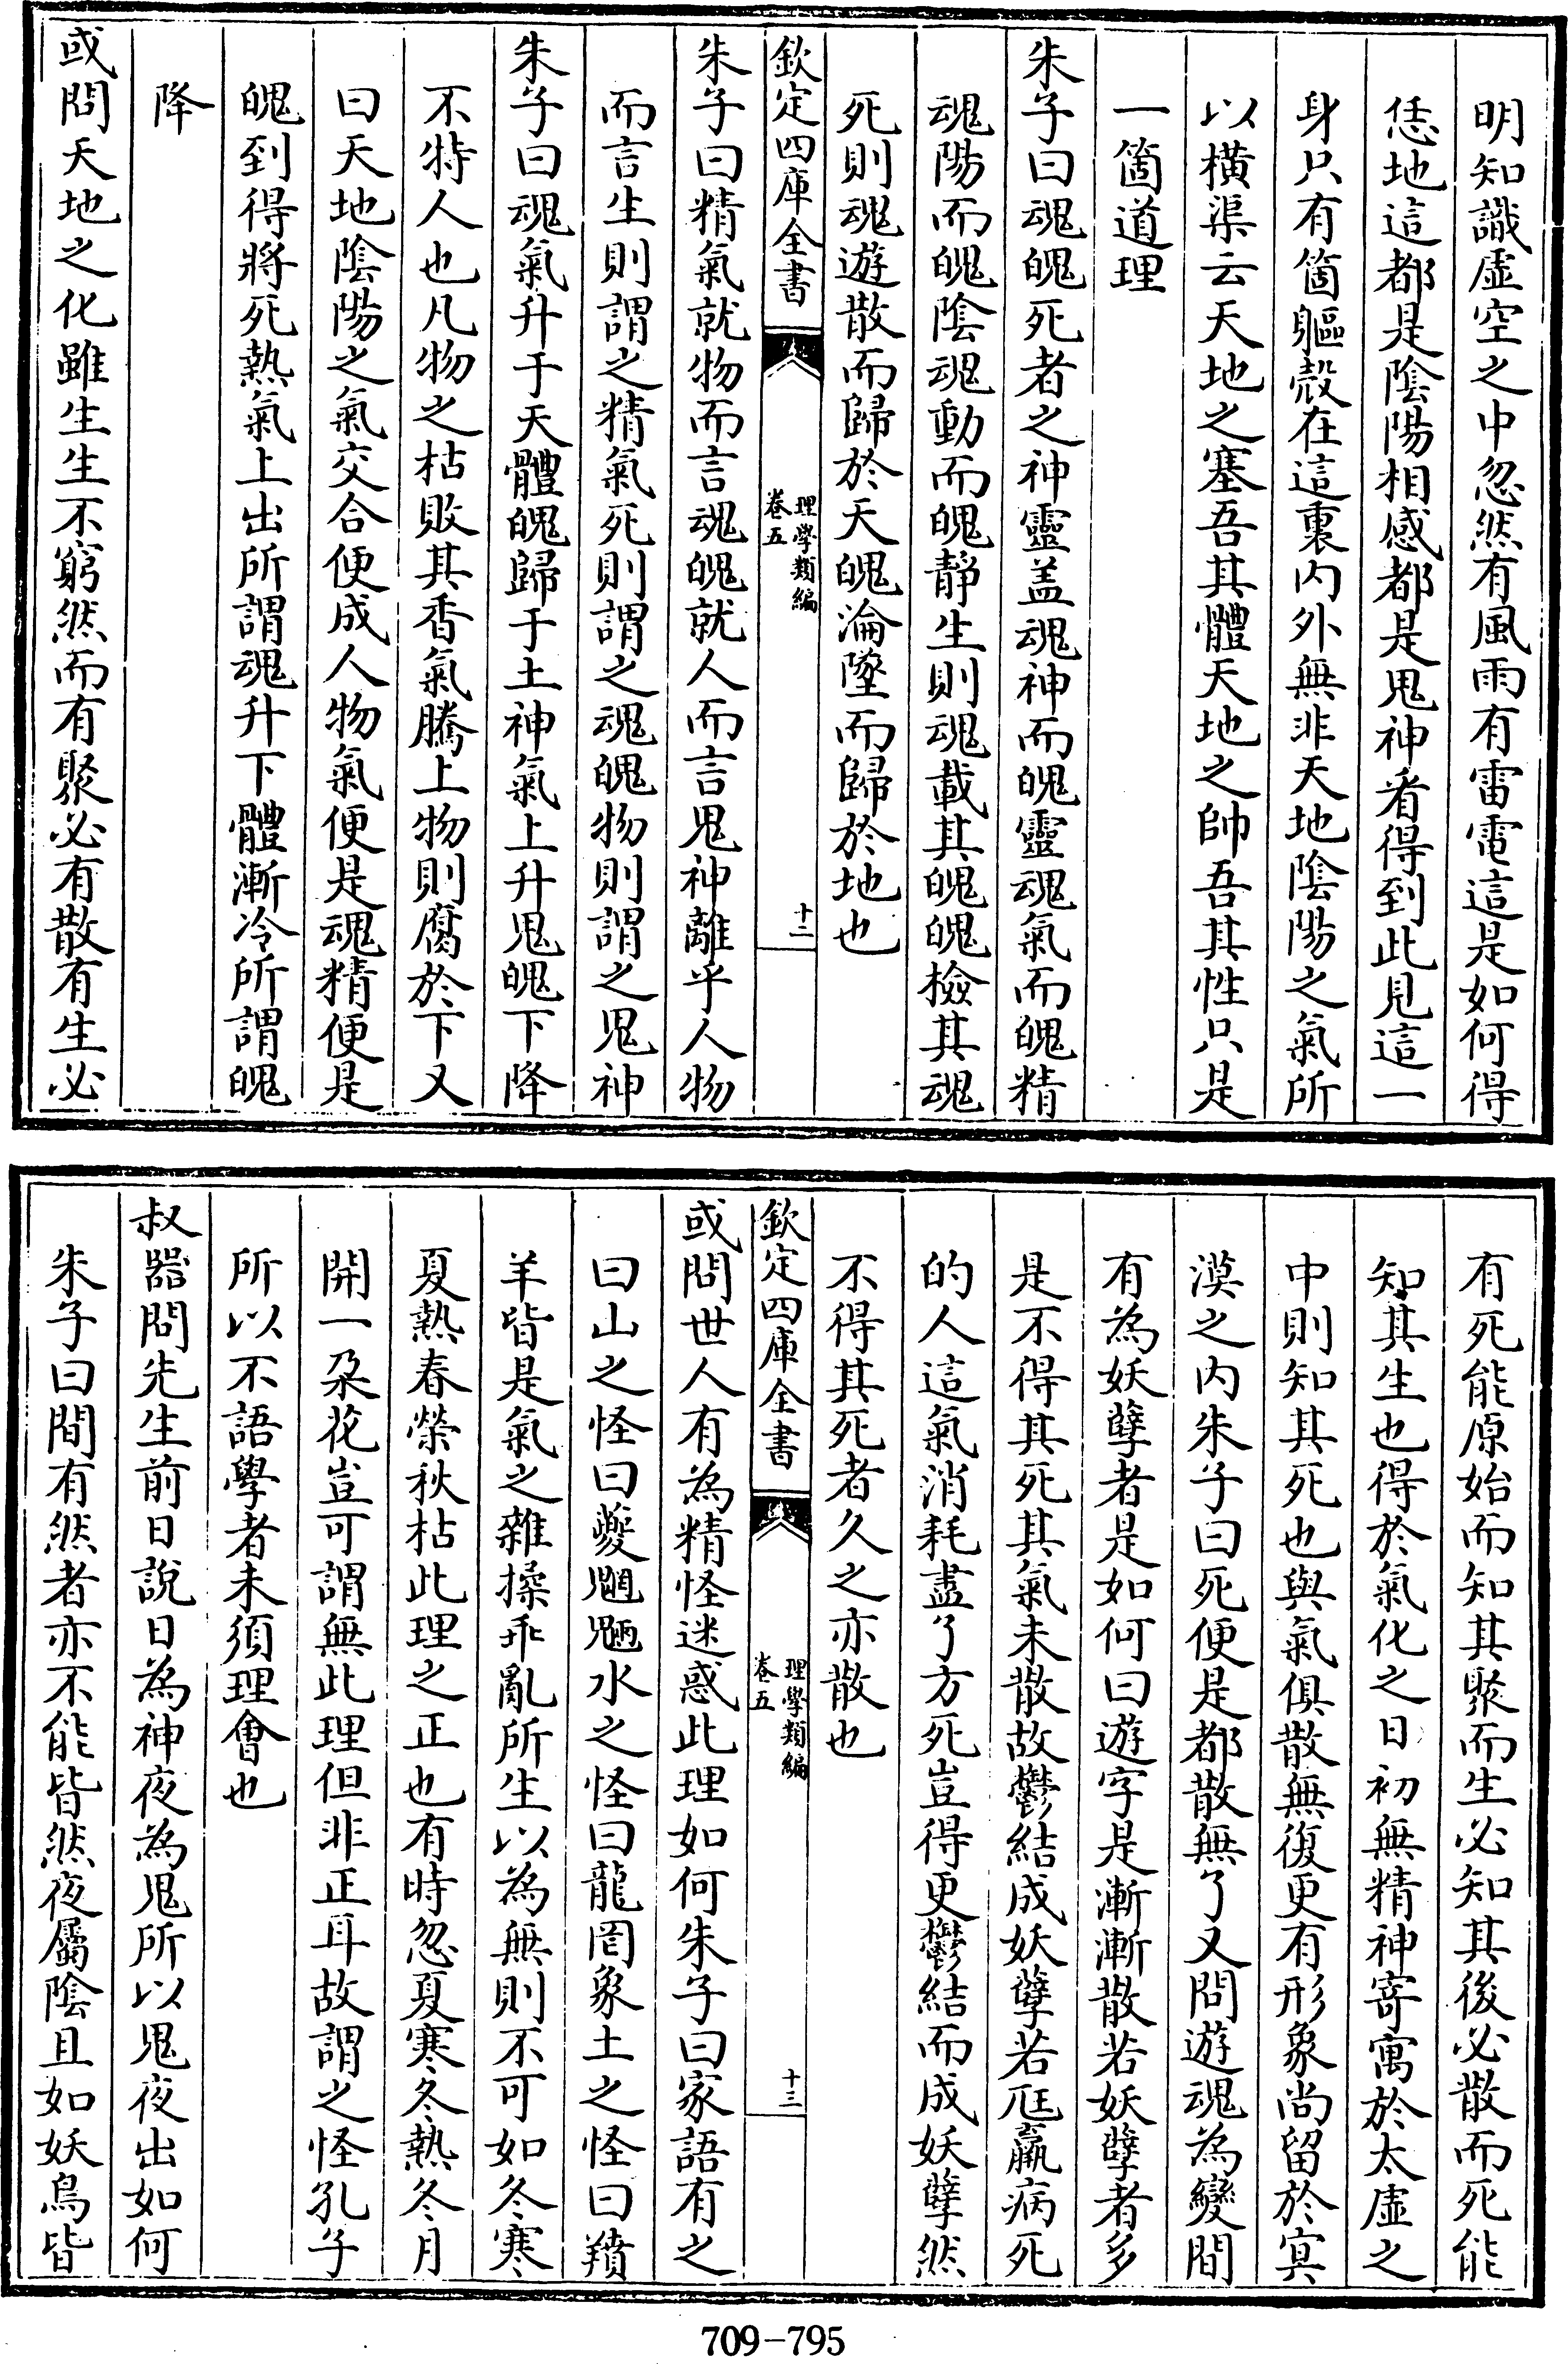 明知識虛空之中忽然有風雨有雷電這是如何得
恁地這都是陰陽相感都是鬼神看得到此見這一
身只有箇軀殼在這裏内外無非天地陰陽之氣所
以橫渠云天地之塞吾其體天地之帥吾其性只是
一箇道理
朱子曰魂魄死者之神靈盖魂神而魄靈魂氣而魄精
魂陽而魄陰魂動而魄靜生則魂載其魄魄檢其魂
死則魂遊散而歸於天魄淪墜而歸於地也
欽定四庫全書
理學類編
卷五
十二
朱子曰精氣就物而言魂魄就人而言鬼神離乎人物
而言生則謂之精氣死則謂之魂魄物則謂之鬼神
朱子曰魂氣升于天體魄歸于土神氣上升鬼魄下降
不特人也凡物之枯敗其香氣騰上物則腐於下又
曰天地陰陽之氣交合便成人物氣便是魂精便是
魄到得將死熱氣上出所謂魂升下體漸冷所謂魄
降
或問天地之化雖生生不窮然而有聚必有散有生必
有死能原始而知其聚而生必知其後必散而死能
知其生也得於氣化之日初無精神寄寓於太虛之
中則知其死也與氣俱散無復更有形象尚留於㝠
漠之内朱子曰死便是都散無了又問遊魂為變間
有為妖孽者是如何曰遊字是漸漸散若妖孽者多
是不得其死其氣未散故鬱結成妖孽若尫羸病死
的人這氣消耗盡了方死豈得更鬱結而成妖孽然
不得其死者久之亦散也
欽定四庫全書
理學類編
卷五
十三
或問世人有為精怪迷惑此理如何朱子曰家語有之
曰山之怪曰夔魍魎水之怪曰龍罔象土之怪曰羵
羊皆是氣之雜揉乖亂所生以為無則不可如冬寒
夏熱春榮秋枯此理之正也有時忽夏寒冬熱冬月
開一朶花豈可謂無此理但非正耳故謂之怪孔子
所以不語學者未須理會也
叔器問先生前日說日為神夜為鬼所以鬼夜出如何
朱子曰間有然者亦不能皆然夜屬陰且如妖鳥皆
709-795